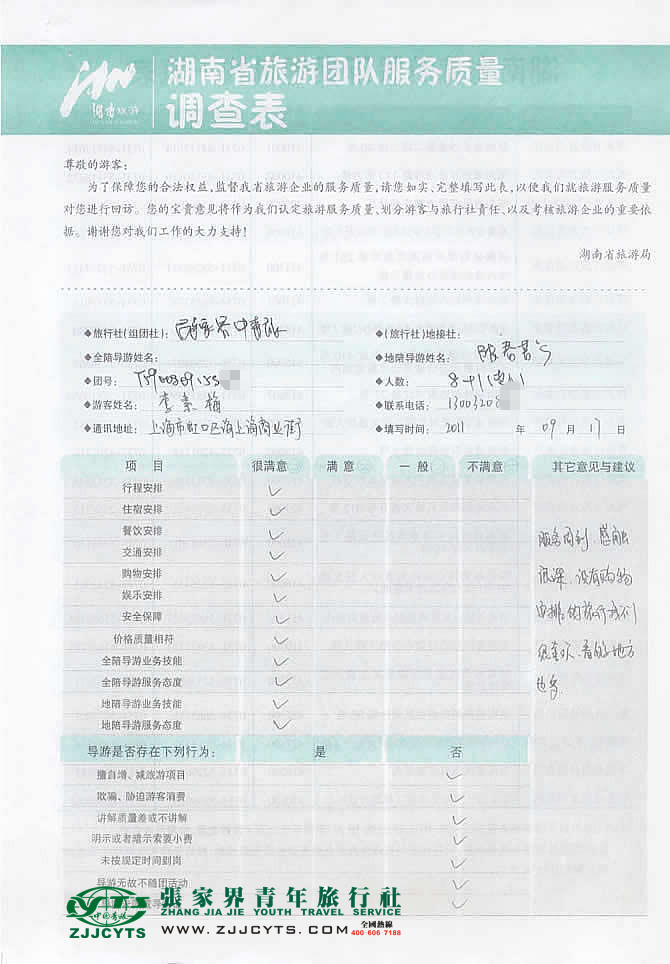 湖南旅游
湖南省旅游团队服务质量
调查表
尊敬的游客:
为了保障您的合法权益,监督我省旅游企业的服务质量,请您如实、完整填写此表,以便我们就旅游服务质量
对您进行回访。您的宝贵意见将作为我们认定旅游服务质量、划分游客与旅行社责任、以及考核旅游企业的重要依
据。谢谢您对我们工作的大力支持!
湖南省旅游局
◆旅行社(组团社): 张家界中青旅 ◆(旅行社)地接社:
◆全陪导游姓名: ◆地陪导游姓名:
◆团号: ◆人数:
◆游客姓名: 李素梅 ◆联系电话: 13003208
◆通讯地址: 上海市虹口区海上海商业街 ◆填写时间: 2011 年 09 月 17 日
项 目 很满意 满 意 一 般 不满意 其它意见与建议
行程安排 ✓
住宿安排 ✓
餐饮安排 ✓
交通安排 ✓
购物安排 ✓
娱乐安排 ✓
安全保障 ✓
价格质量相符 ✓
全陪导游业务技能 ✓
全陪导游服务态度 ✓
地陪导游业务技能 ✓
地陪导游服务态度 ✓
服务周到、感触
很深、没有购物
安排的旅行我们
很喜欢、看的地方
也多.
导游是否存在下列行为: 是 否
擅自增、减旅游项目 ✓
欺骗、胁迫游客消费 ✓
讲解质量差或不讲解 ✓
明示或者暗示索要小费 ✓
未按规定时间到岗 ✓
导游无故不随团活动 ✓
中国青旅
ZJJCYTS
張家界青年旅行社
ZHANG JIA JIE YOUTH TRAVEL SERVICE
WWW.ZJJCYTS.COM
全國熱線
400 606 7188